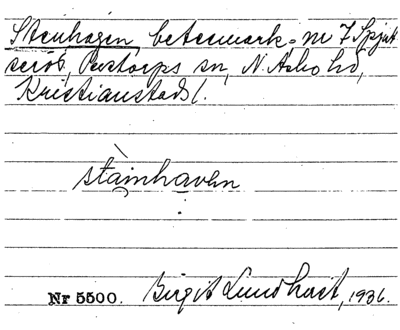 Stenhagen betesmark. nr 7 Spjut-
seröd, Perstorps sn, N. Åsbo hd,
Kristianstads l.
stäinhaven
Nr 5500. Birgit Lundkvist, 1936.